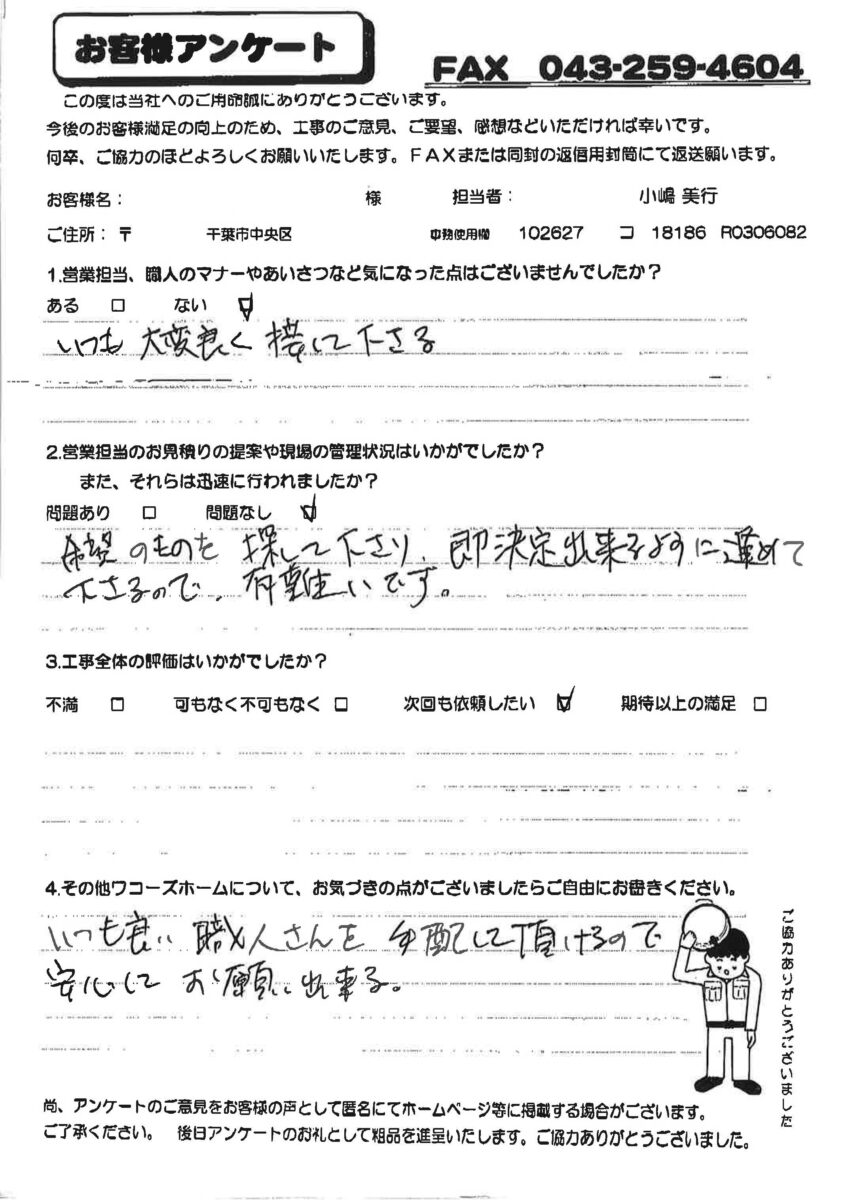 お客様アンケート
FAX 043-259-4604
この度は当社へのご用命誠にありがとうございます。
今後のお客様満足の向上のため、工事のご意見、ご要望、感想などいただければ幸いです。
何卒、ご協力のほどよろしくお願いいたします。FAXまたは同封の返信用封筒にて返送願います。
お客様名： 様 担当者： 小嶋 美行
ご住所：〒 千葉市中央区 事務使用欄 102627 コ 18186 R0306082
1.営業担当、職人のマナーやあいさつなど気になった点はございませんでしたか？
ある □ ない ☑
いつも 大変良く 接して下さる
2.営業担当のお見積りの提案や現場の管理状況はいかがでしたか？
また、それらは迅速に行われましたか？
問題あり □ 問題なし ☑
希望のものを 探して下さり、即決定出来るように進めて
下さるので、有難いです。
3.工事全体の評価はいかがでしたか？
不満 □ 可もなく不可もなく □ 次回も依頼したい ☑ 期待以上の満足 □
4.その他ワコーズホームについて、お気づきの点がございましたらご自由にお書きください。
いつも良い 職人さんを 手配して頂けるので
安心して お願い出来る。
ご協力ありがとうございました
尚、アンケートのご意見をお客様の声として匿名にてホームページ等に掲載する場合がございます。
ご了承ください。 後日アンケートのお礼として粗品を進呈いたします。ご協力ありがとうございました。